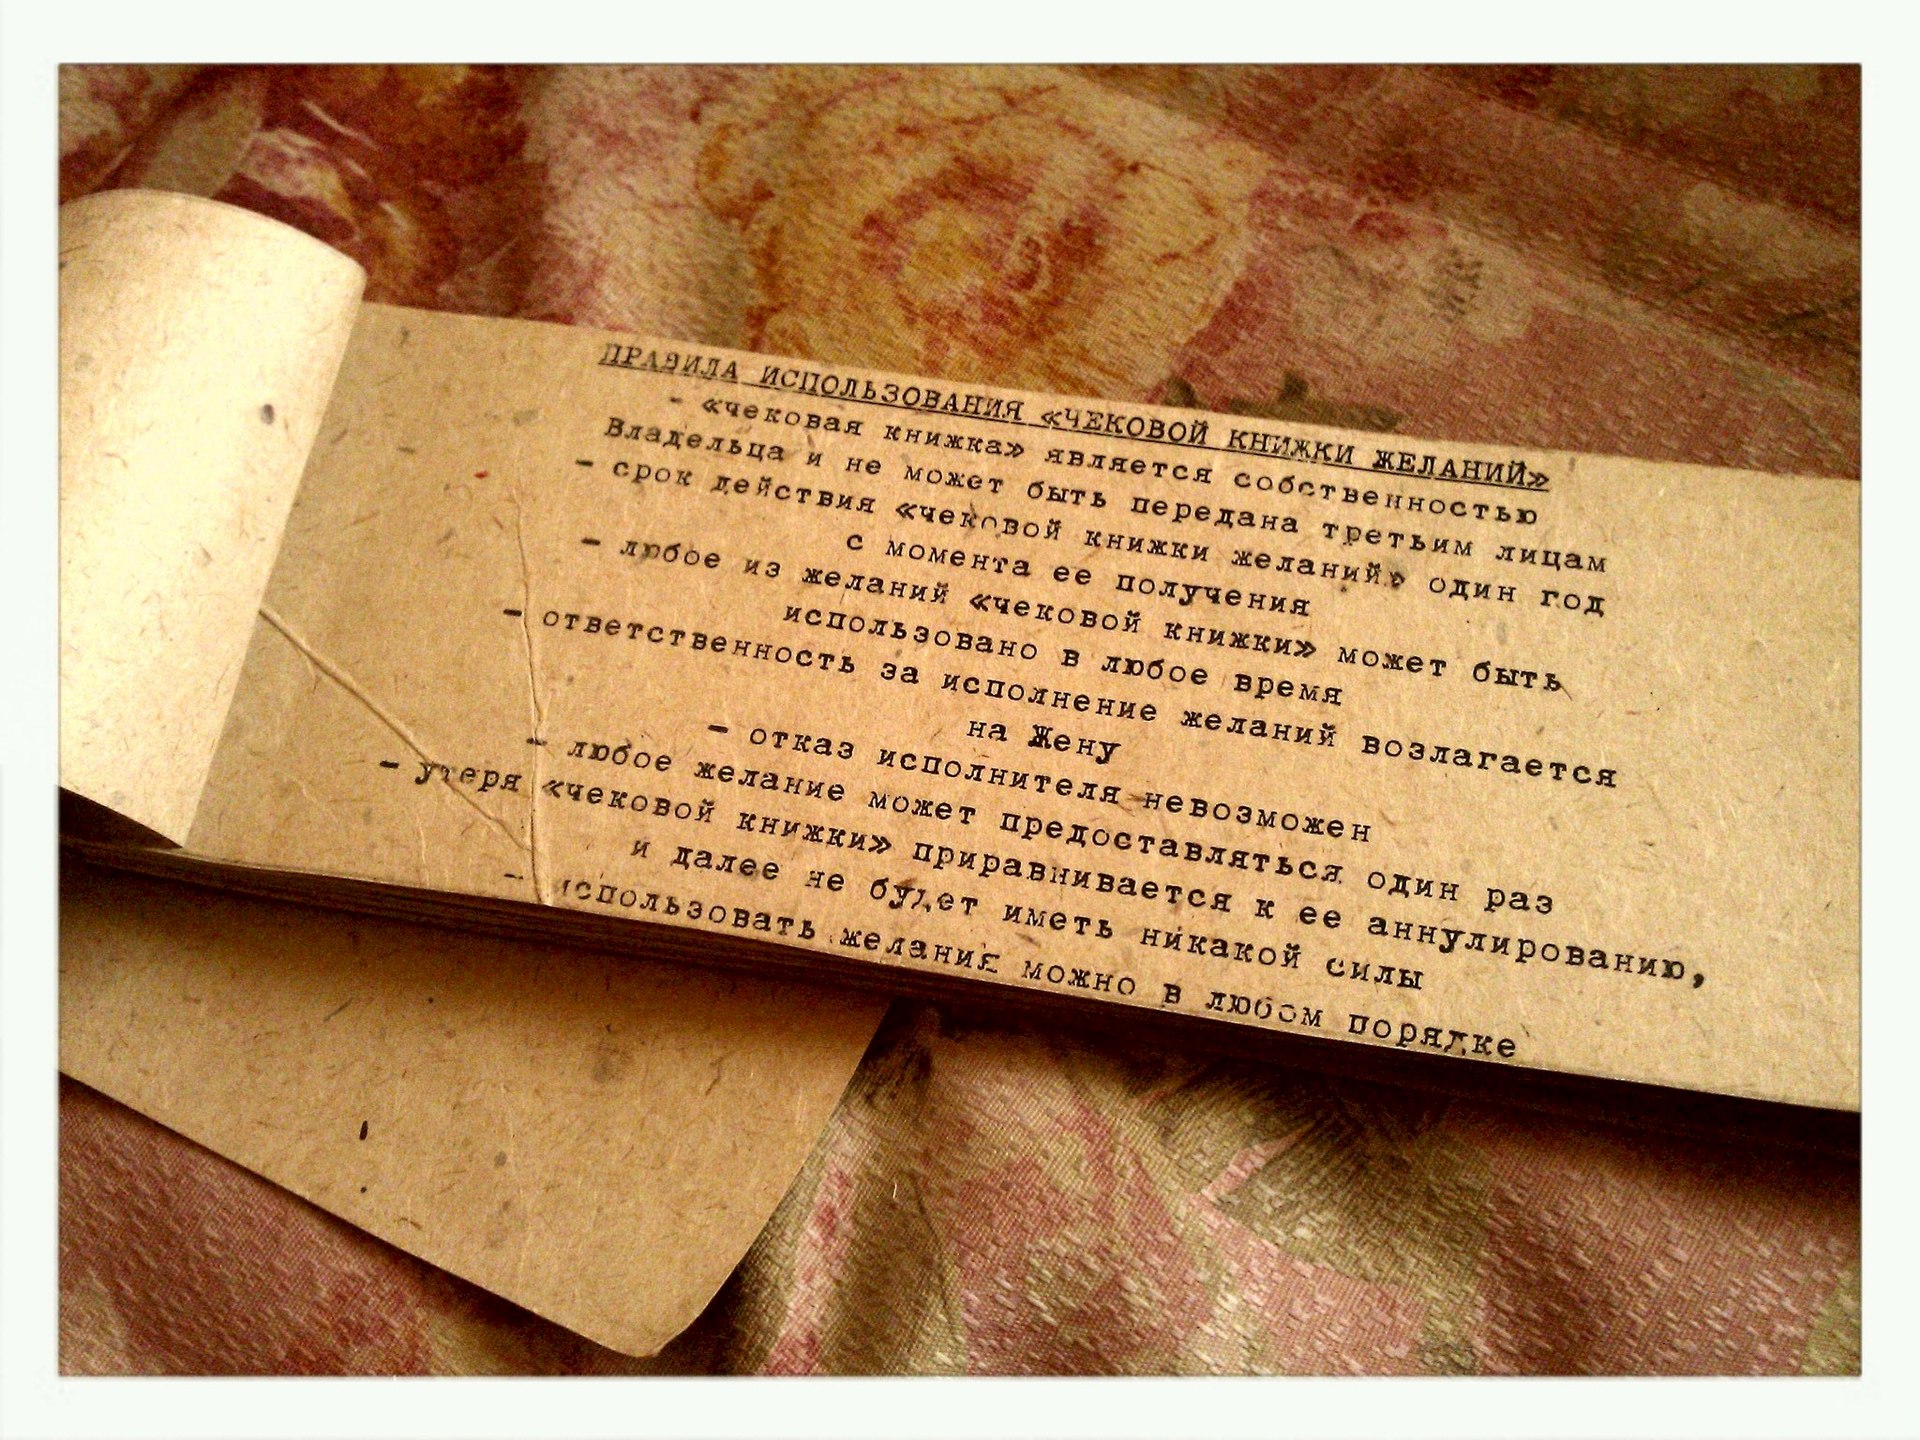 ПРАВИЛА ИСПОЛЬЗОВАНИЯ «ЧЕКОВОЙ КНИЖКИ ЖЕЛАНИЙ»
- «чековая книжка» является собственностью
Владельца и не может быть передана третьим лицам
- срок действия «чековой книжки желаний» один год
с момента ее получения
- любое из желаний «чековой книжки» может быть
использовано в любое время
- ответственность за исполнение желаний возлагается
на Жену
- отказ исполнителя невозможен
- любое желание может предоставляться один раз
- утеря «чековой книжки» приравнивается к ее аннулированию,
и далее не будет иметь никакой силы
- использовать желания можно в любом порядке